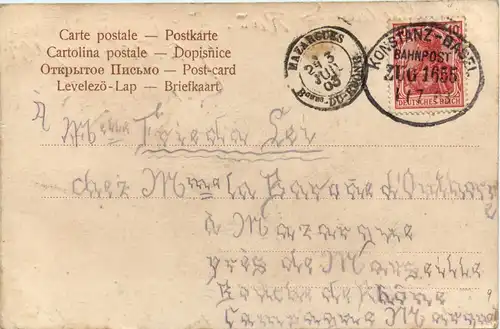 Carte postale — Postkarte
Cartolina postale — Dopisnice
Открытое Письмо — Post-card
Levelezö-Lap — Briefkaart
MAZARGUES
3
JUIL
Bches-DU-RHONE
KONSTANZ - BASEL
BAHNPOST
ZUG 1655
DEUTSCHES REICH
A Melle Frieda
chez Mme la Baronne
à Mazargues
près de Marseille
Bouche du Rhône